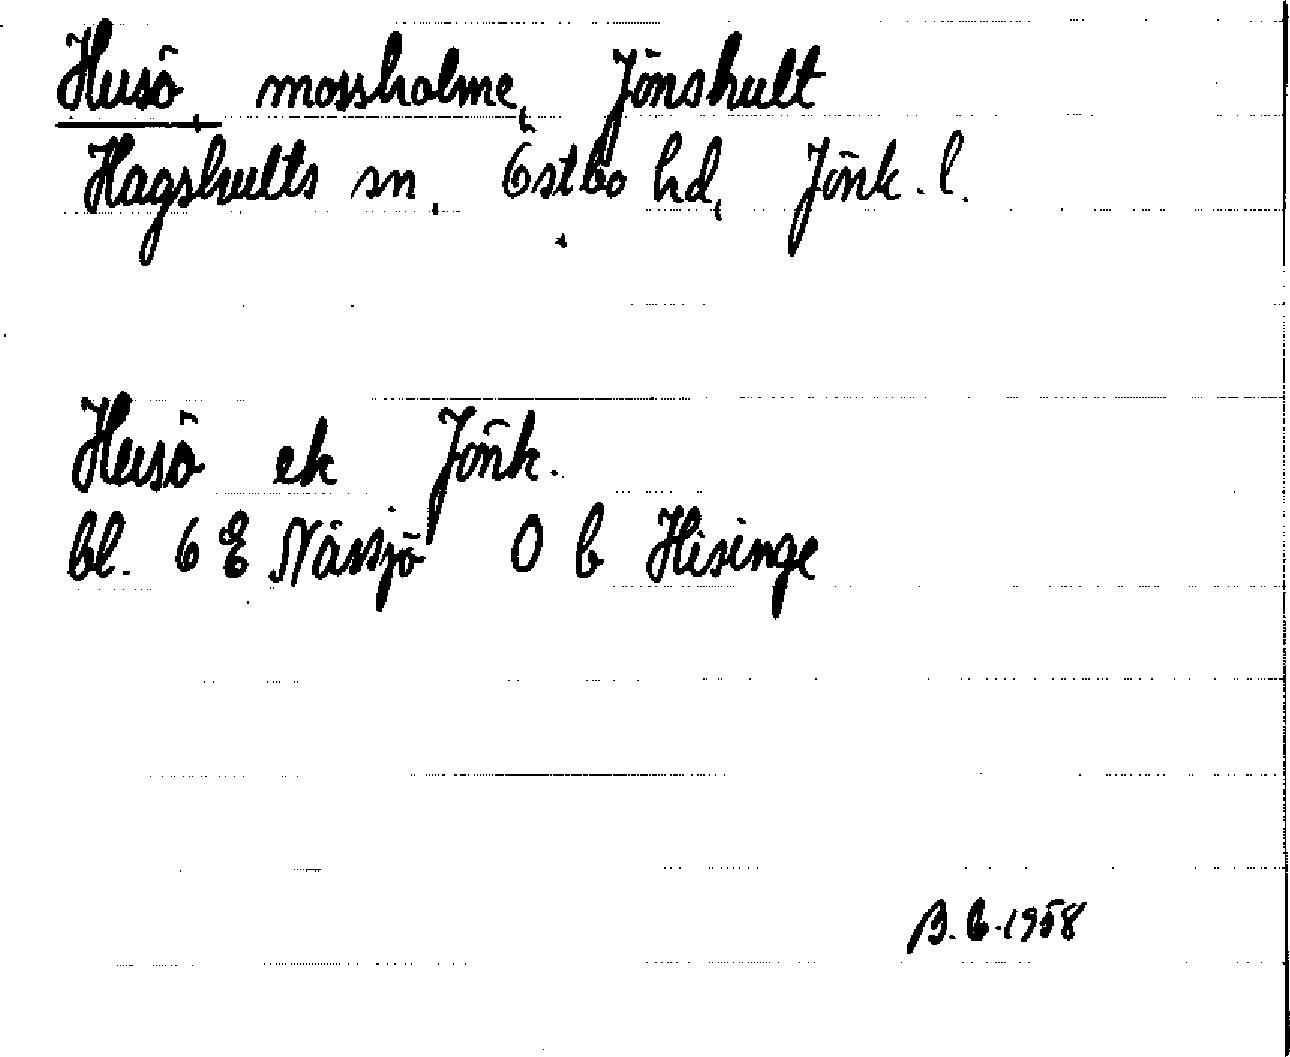 Husö, mossholme, Jönshult
Hagshults sn, Östbo hd, Jönk. l.
Husö ek Jönk.
bl. 6 E Nässjö O b Hisinge
B. E. 1958